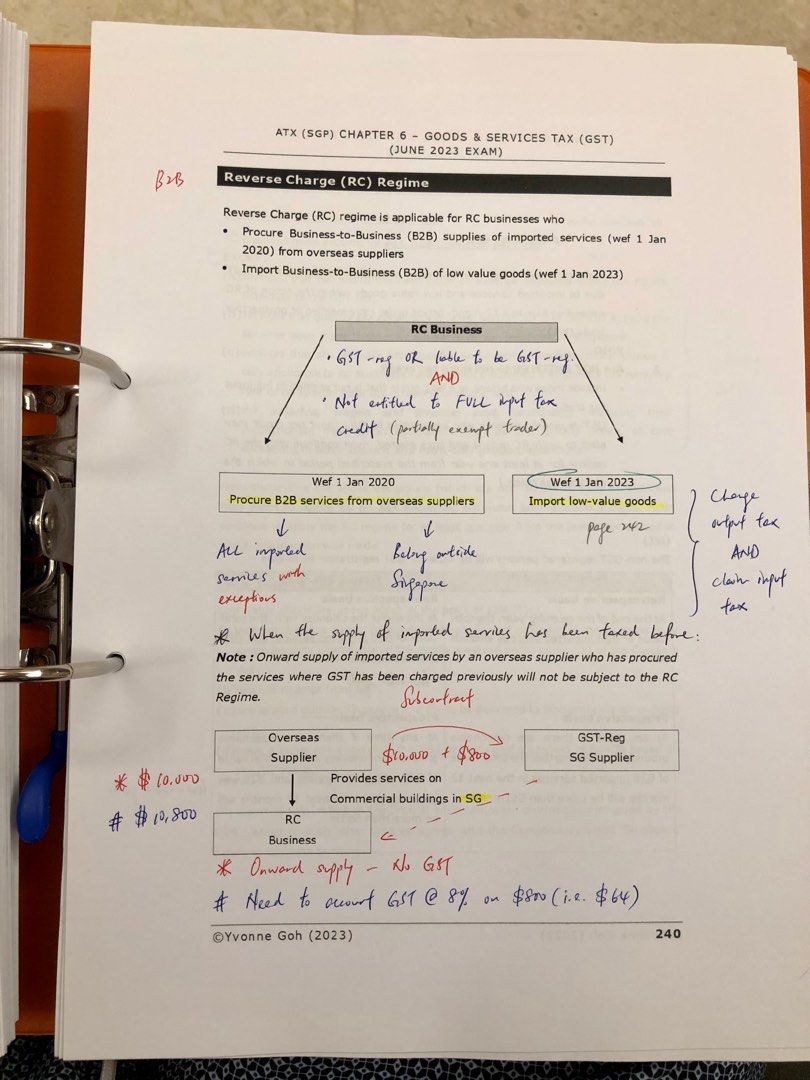 ATX (SGP) CHAPTER 6 – GOODS & SERVICES TAX (GST)
(JUNE 2023 EXAM)
B2B
Reverse Charge (RC) Regime
Reverse Charge (RC) regime is applicable for RC businesses who
• Procure Business-to-Business (B2B) supplies of imported services (wef 1 Jan
2020) from overseas suppliers
• Import Business-to-Business (B2B) of low value goods (wef 1 Jan 2023)
RC Business
• GST-reg OR liable to be GST-reg.
AND
• Not entitled to FULL input tax
credit (partially exempt trader)
Wef 1 Jan 2020
Procure B2B services from overseas suppliers
Wef 1 Jan 2023
Import low-value goods
page 242
Charge
output tax
AND
claim input
tax
ALL imported
services with
exceptions
Belong outside
Singapore
* When the supply of imported services has been taxed before:
Note : Onward supply of imported services by an overseas supplier who has procured
the services where GST has been charged previously will not be subject to the RC
Regime.
Subcontract
Overseas
Supplier
$10,000 + $800
GST-Reg
SG Supplier
* $10,000
# $10,800
Provides services on
Commercial buildings in SG
RC
Business
* Onward supply – No GST
# Need to account GST @ 8% on $800 (i.e. $64)
©Yvonne Goh (2023)
240